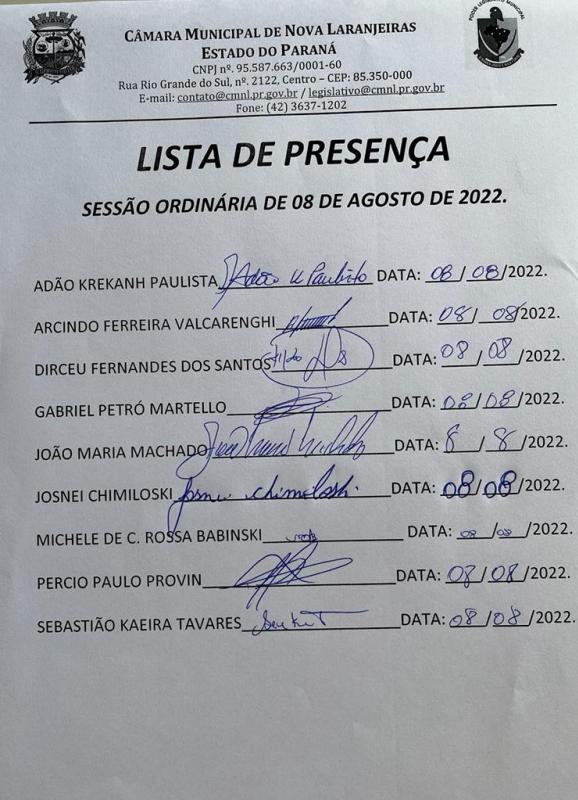 CÂMARA MUNICIPAL DE NOVA LARANJEIRAS
ESTADO DO PARANÁ
CNPJ nº. 95.587.663/0001-60
Rua Rio Grande do Sul, nº. 2122, Centro – CEP: 85.350-000
E-mail: contato@cmnl.pr.gov.br / legislativo@cmnl.pr.gov.br
Fone: (42) 3637-1202
LISTA DE PRESENÇA
SESSÃO ORDINÁRIA DE 08 DE AGOSTO DE 2022.
ADÃO KREKANH PAULISTA Adão K Paulista DATA: 08/08/2022.
ARCINDO FERREIRA VALCARENGHI DATA: 08/08/2022.
DIRCEU FERNANDES DOS SANTOS DATA: 08/08/2022.
GABRIEL PETRÓ MARTELLO DATA: 08/08/2022.
JOÃO MARIA MACHADO DATA: 8/8/2022.
JOSNEI CHIMILOSKI Josnei Chimiloski. DATA: 08/08/2022.
MICHELE DE C. ROSSA BABINSKI DATA: 08/08/2022.
PERCIO PAULO PROVIN DATA: 08/08/2022.
SEBASTIÃO KAEIRA TAVARES DATA: 08/08/2022.